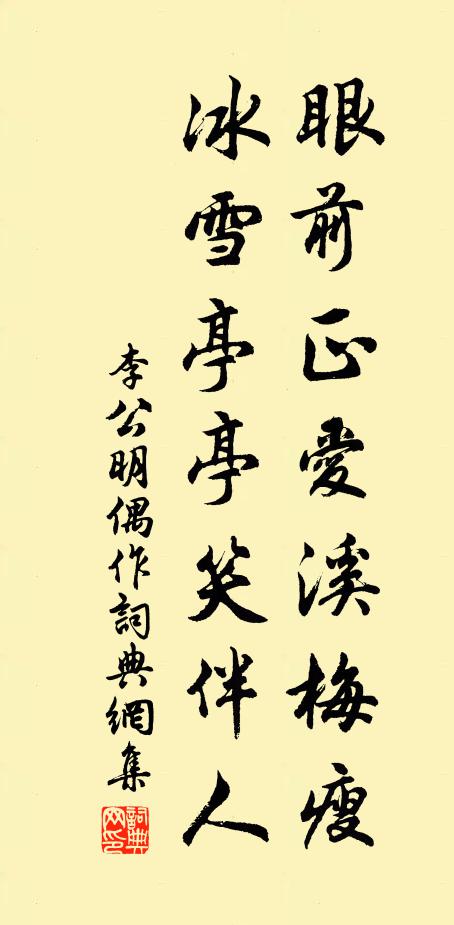 眼前正愛溪梅瘦
冰雪亭亭笑伴人
李公明偶作詞典網集
詞典网印